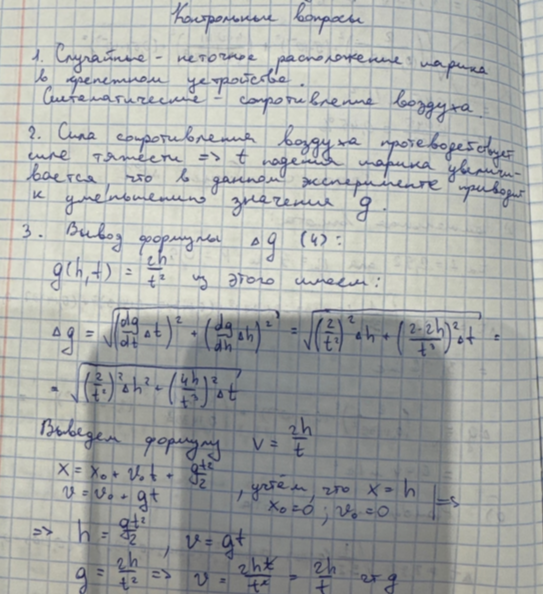 Контрольные вопросы
1. Случайные - неточное расположение шарика
в крепежном устройстве.
Систематические - сопротивление воздуха.
2. Сила сопротивления воздуха противодействует
силе тяжести => t падения шарика увеличи-
вается, что в данном эксперименте приводит
к уменьшению значения g.
3. Вывод формулы Δg (4):
g(h,t) = 2h/t² из этого имеем:
Δg = √((dg/dt Δt)² + (dg/dh Δh)²) = √((2/t²)² Δh + (2·2h/t³)² Δt) =
= √((2/t²)² Δh² + (4h/t³)² Δt)
Выведем формулу v = 2h/t
x = x₀ + v₀t + gt²/2
v = v₀ + gt , учтём, что x = h
x₀=0 ; v₀=0 | =>
=> h = gt²/2 , v = gt
g = 2h/t² => v = 2ht/t² = 2h/t чтд